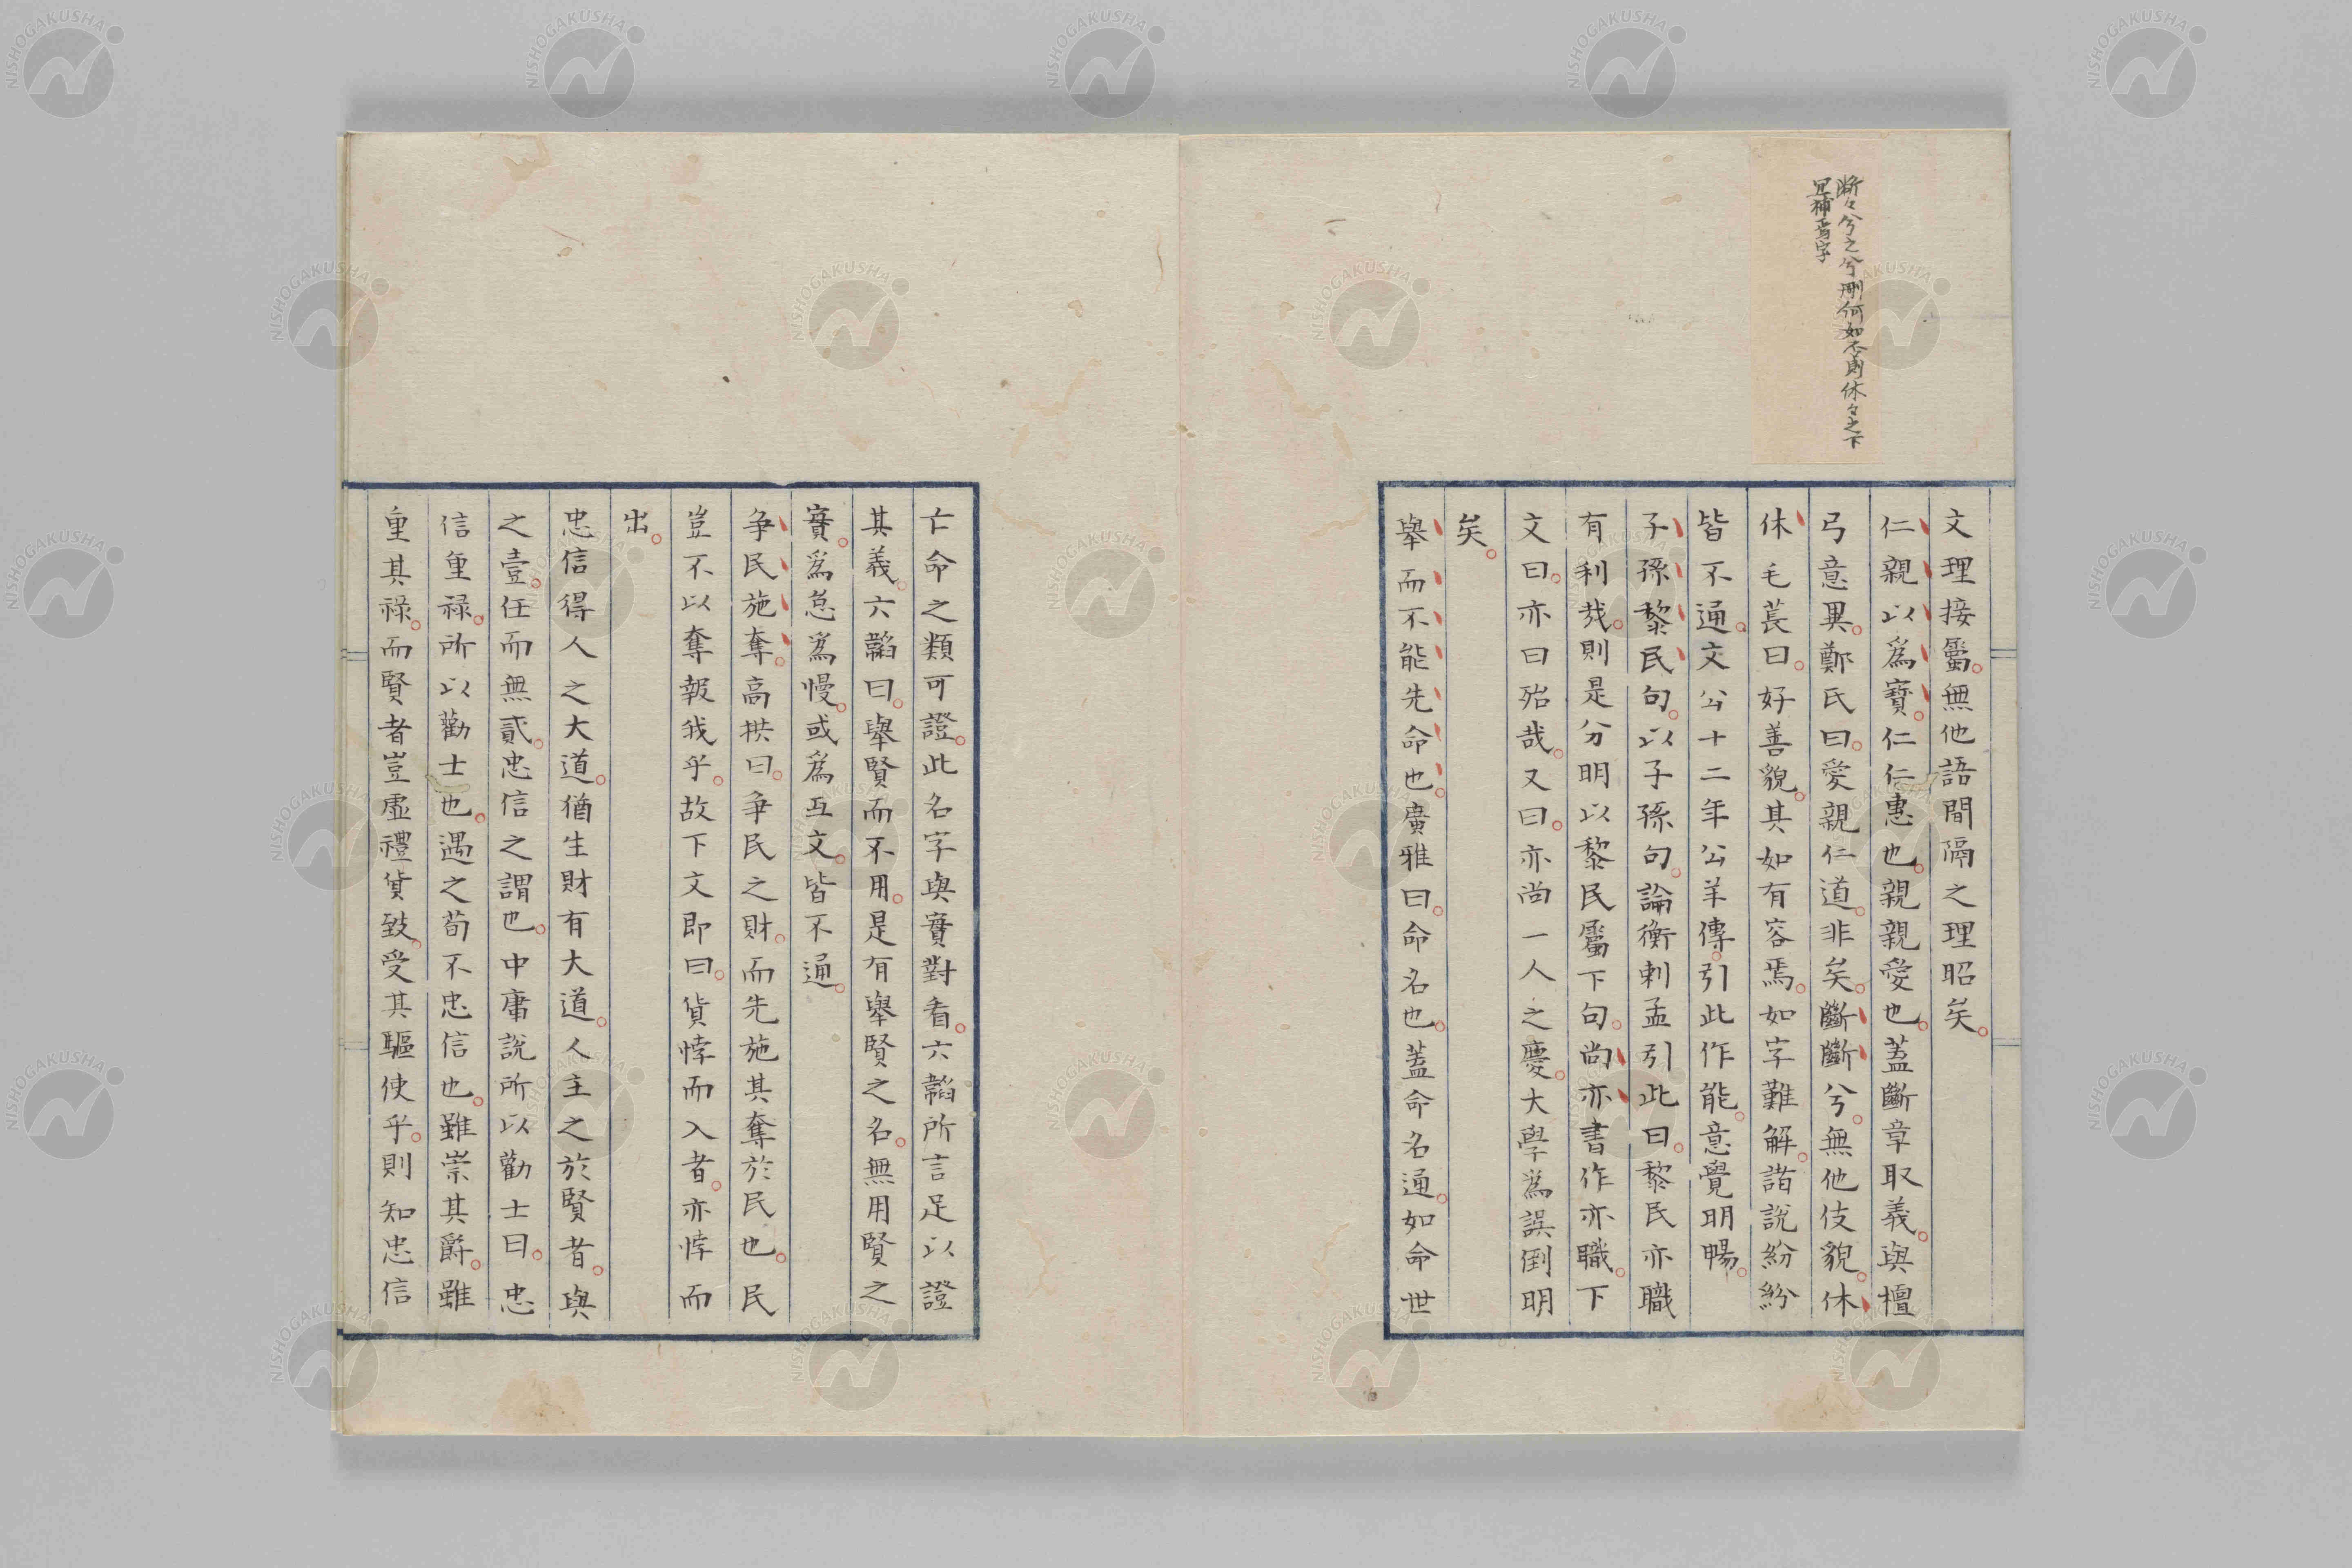 断々兮之兮刪何如不爾休々之下
宜補焉字
文理接屬。無他語間隔之理昭矣。
仁親以爲寶。仁仁惠也。親親愛也。蓋斷章取義。與檀
弓意異。鄭氏曰。愛親仁道。非矣。斷斷兮。無他伎貌。休
休毛萇曰。好善貌。其如有容焉。如字難解。諸說紛紛
皆不通。文公十二年公羊傳。引此作能。意覺明暢。
子孫黎民句。以子孫句。論衡刺孟引此曰。黎民亦職
有利哉。則是分明以黎民屬下句。尚亦書作亦職。下
文曰。亦曰殆哉。又曰。亦尚一人之慶。大學爲誤倒明
矣。
舉而不能先命也。廣雅曰。命名也。蓋命名通。如命世
亡命之類可證。此名字與實對看。六韜所言足以證
其義。六韜曰。舉賢而不用。是有舉賢之名。無用賢之
實。爲怠爲慢。或爲互文。皆不通。
爭民施奪。高拱曰。爭民之財。而先施其奪於民也。民
豈不以奪報我乎。故下文即曰。貨悖而入者。亦悖而
出。
忠信得人之大道。猶生財有大道。人主之於賢者。與
之壹。任而無貳。忠信之謂也。中庸說所以勸士曰。忠
信重祿。所以勸士也。遇之苟不忠信也。雖崇其爵。雖
重其祿。而賢者豈虛禮貨致。受其驅使乎。則知忠信
NISHOGAKUSHA